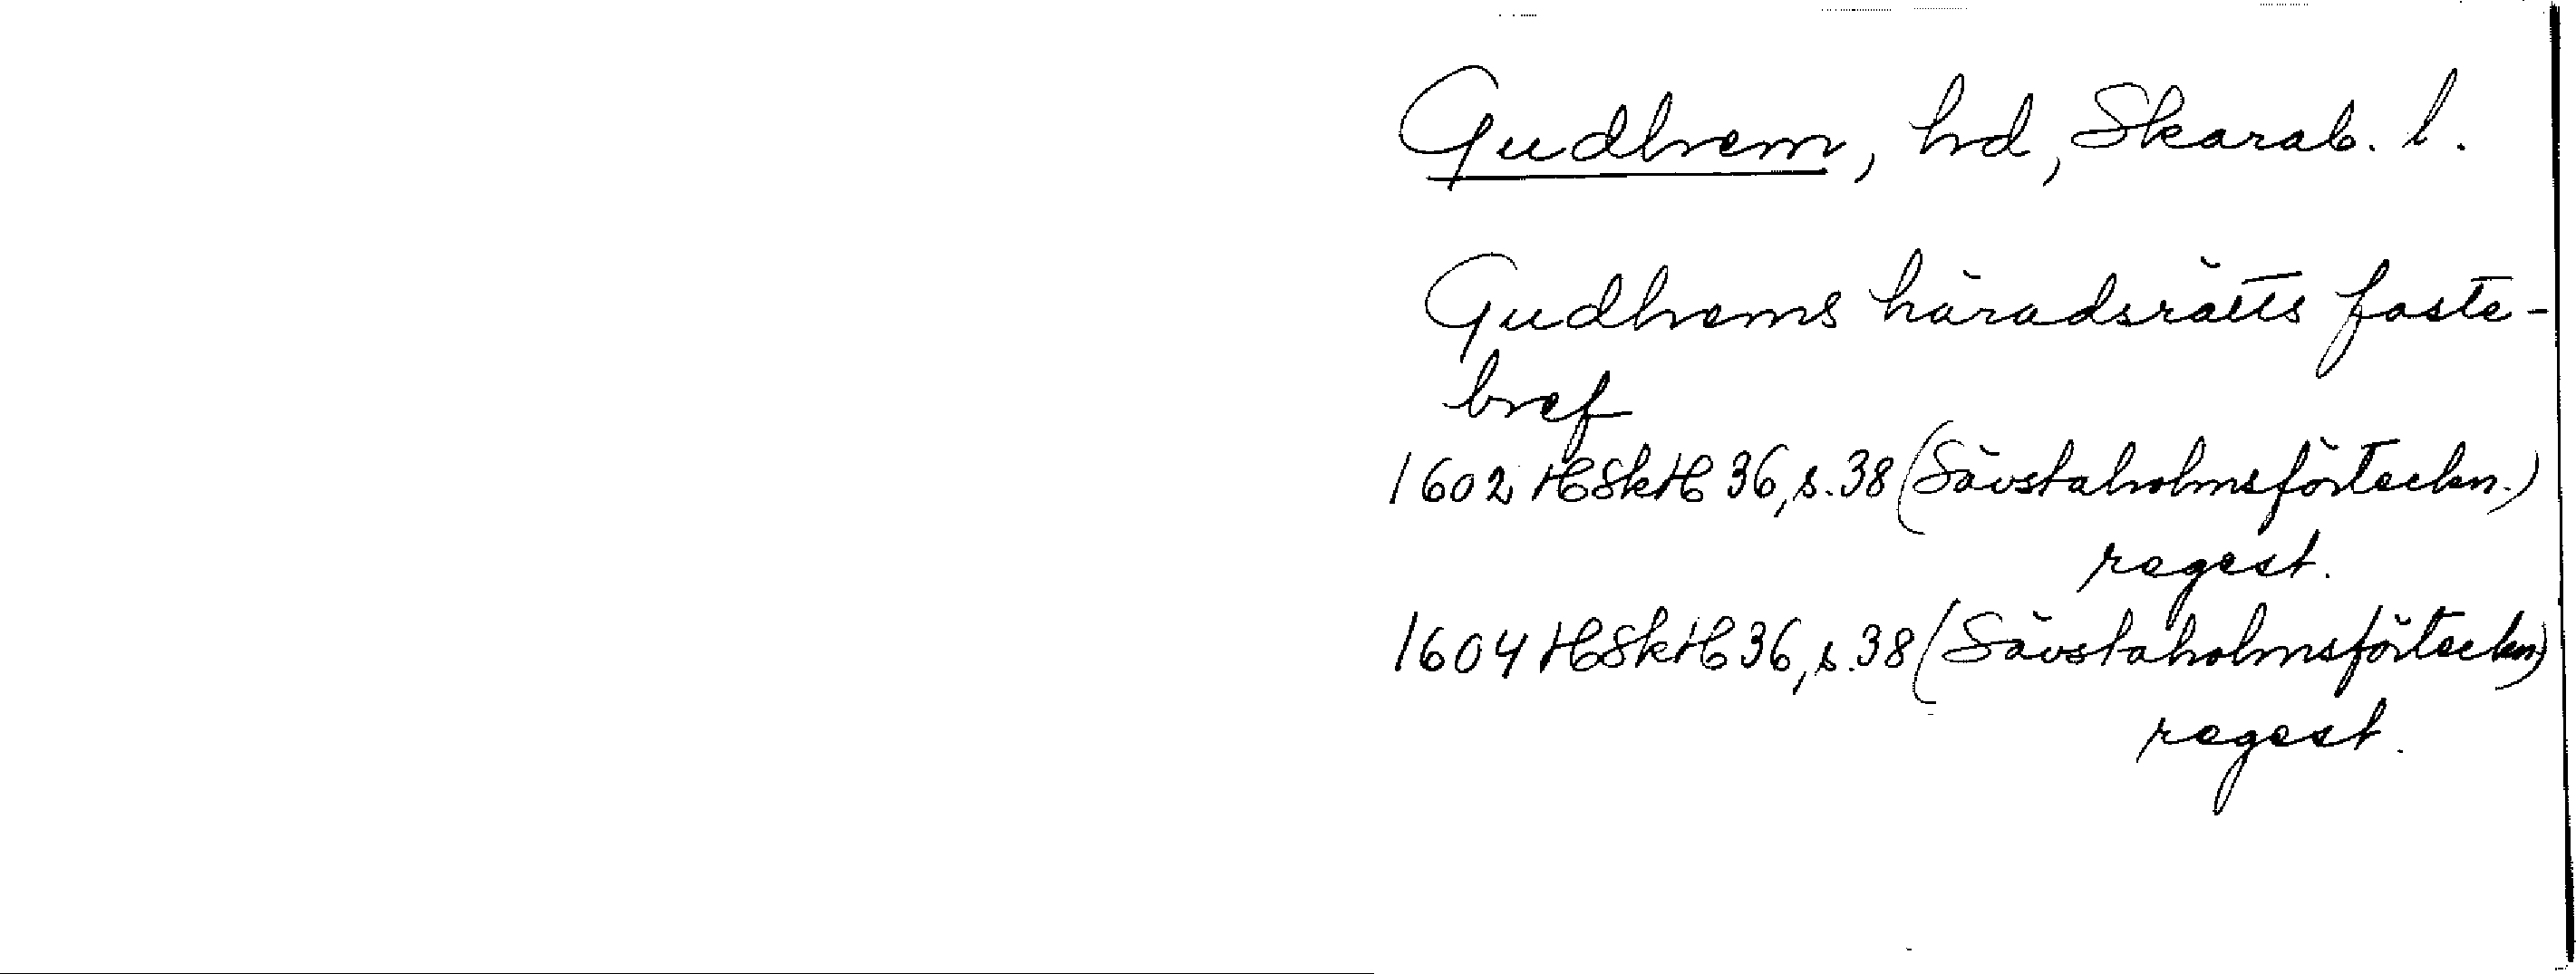 Gudhem, hd, Skarab. l.
Gudhems häradsrätts faste-
bref
1602 HSkH 36, s. 38 (Sävstaholmsförteckn.)
regest.
1604 HSkH 36, s. 38 (Sävstaholmsförteckn)
regest.